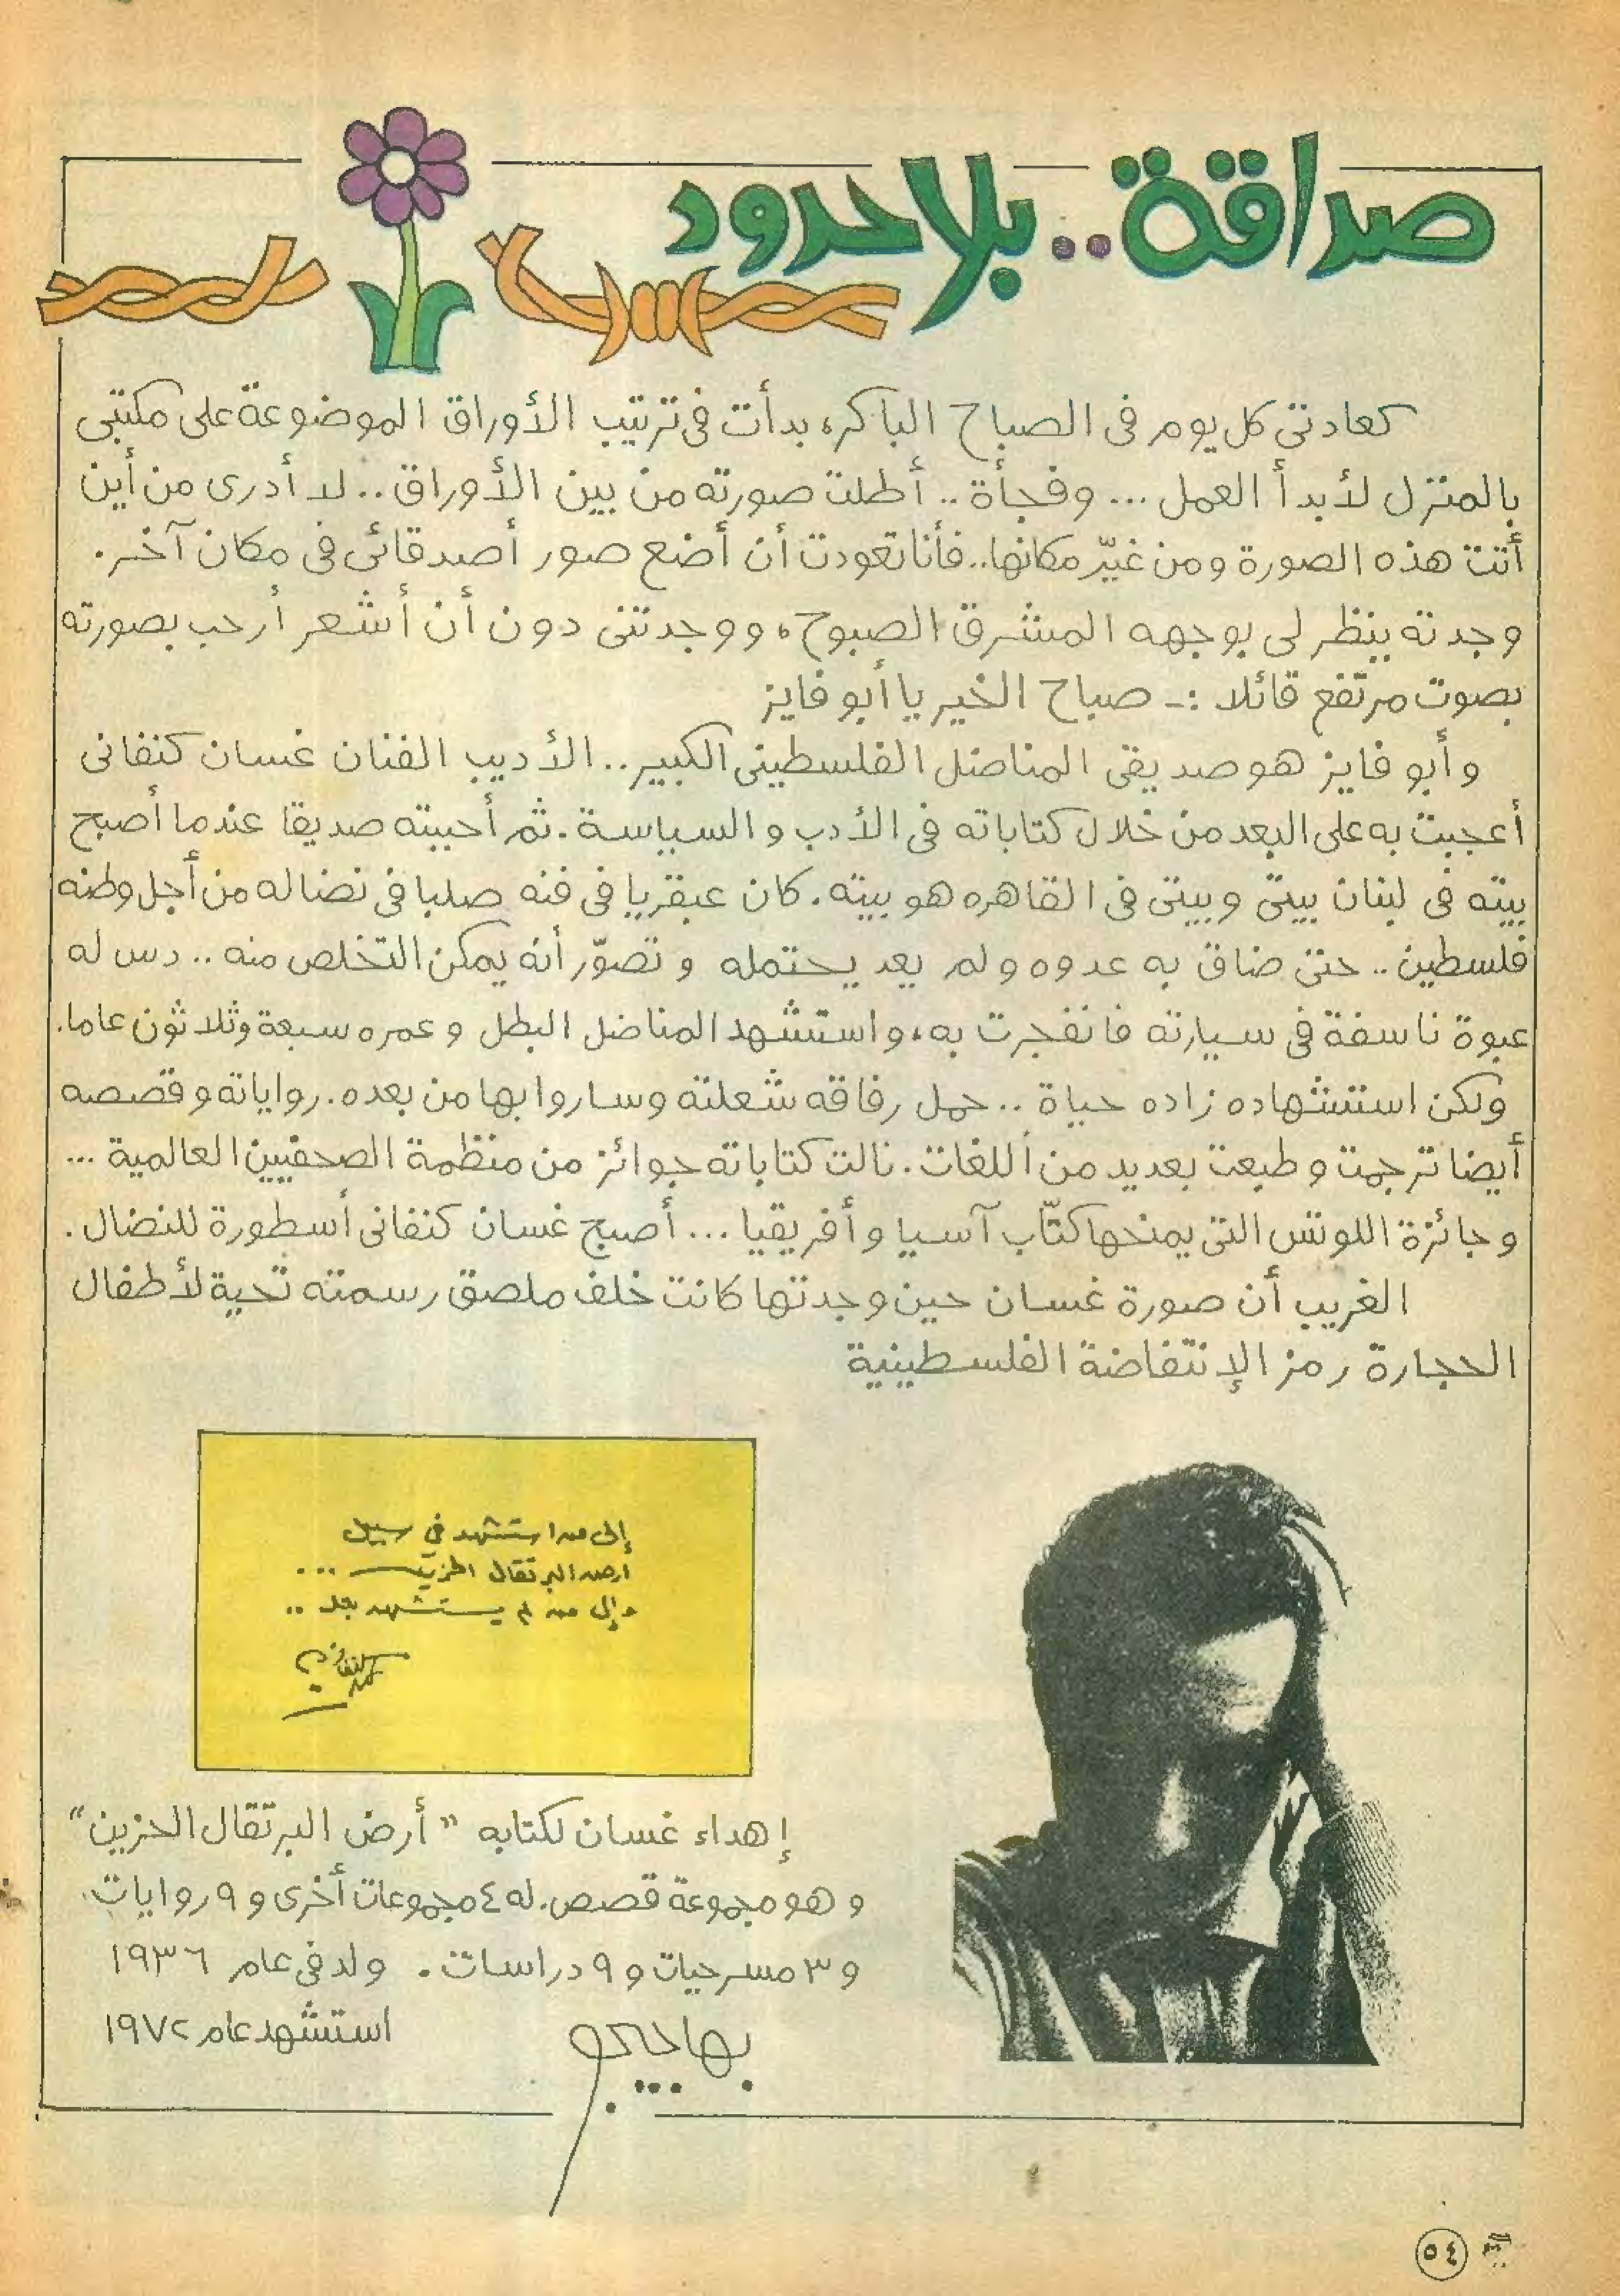 صداقة.. بلا حدود
كعادتى كل يوم فى الصباح الباكر، بدأت فى ترتيب الأوراق الموضوعة على مكتبى
بالمنزل لأبدأ العمل ... وفجأة .. أطلت صورته من بين الأوراق .. لا أدرى من أين
أتت هذه الصورة ومن غيّر مكانها.. فأنا تعودت أن أضع صور أصدقائى فى مكان آخر.
وجدته ينظر لى بوجهه المشرق الصبوح، ووجدتنى دون أن أشعر أرحب بصورته
بصوت مرتفع قائلا :- صباح الخير يا أبو فايز
وأبو فايز هو صديقى المناضل الفلسطينى الكبير.. الأديب الفنان غسان كنفانى
أعجبت به على البعد من خلال كتاباته فى الأدب والسياسة. ثم أحببته صديقا عندما أصبح
بيته فى لبنان بيتى وبيتى فى القاهره هو بيته. كان عبقريا فى فنه صلبا فى نضاله من أجل وطنه
فلسطين .. حتى ضاق به عدوه ولم يعد يحتمله وتصوّر أنه يمكن التخلص منه .. دس له
عبوة ناسفة فى سيارته فانفجرت به، واستشهد المناضل البطل وعمره سبعة وثلاثون عاما.
ولكن استشهاده زاده حياة .. حمل رفاقه شعلته وساروا بها من بعده. رواياته وقصصه
أيضا ترجمت وطبعت بعديد من اللغات. نالت كتاباته جوائز من منظمة الصحفيين العالمية ...
وجائزة اللوتس التى يمنحها كتّاب آسيا وأفريقيا ... أصبح غسان كنفانى أسطورة للنضال.
الغريب أن صورة غسان حين وجدتها كانت خلف ملصق رسمته تحية لأطفال
الحجارة رمز الإنتفاضة الفلسطينية
إلى من استشهد في سبيل
أرض البرتقال الحزين ...
وإلى من لم يستشهد بعد ..
إهداء غسان لكتابه "أرض البرتقال الحزين"
وهو مجموعة قصص. له ٤ مجموعات أخرى و ٩ روايات.
و ٣ مسرحيات و ٩ دراسات. ولد فى عام ١٩٣٦
استشهد عام ١٩٧٢
٥٤